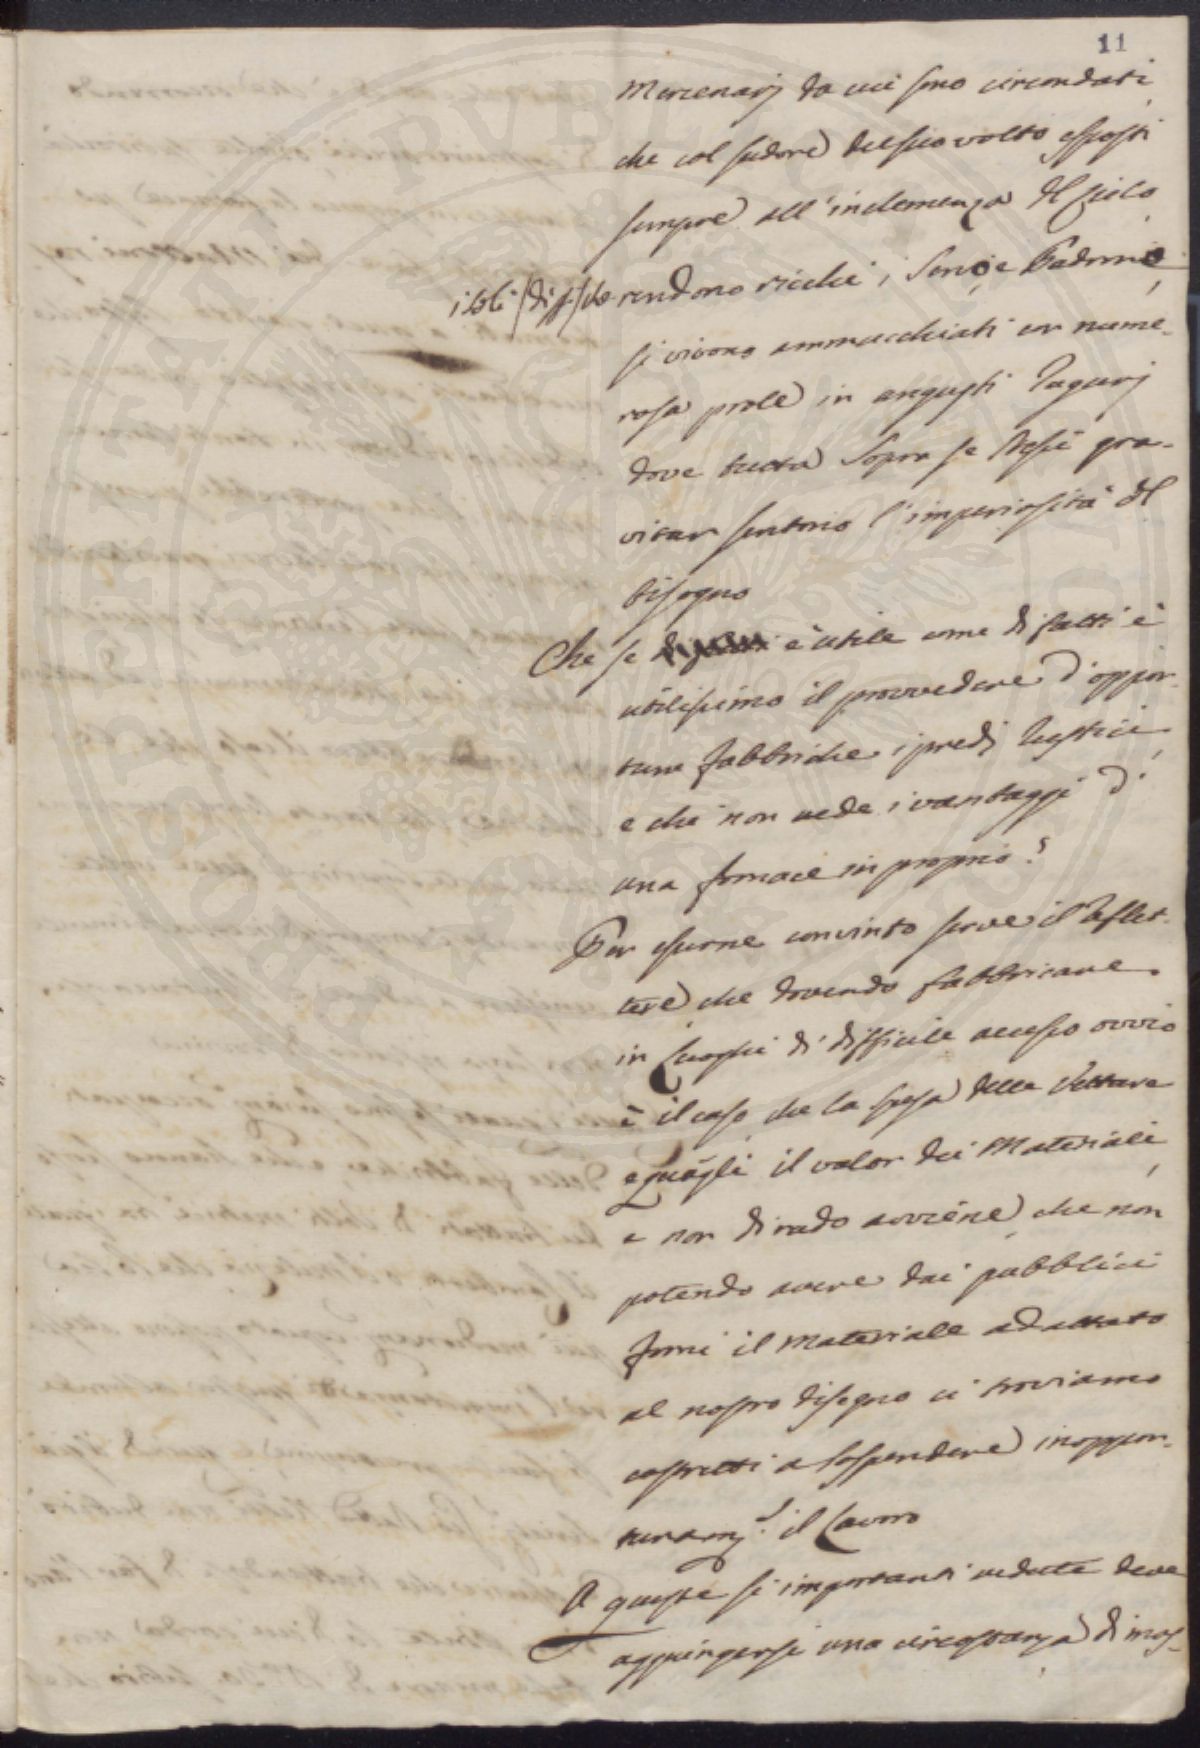 11
Mercenarj da cui sono circondati,
che col sudore del suo volto esposti
sempre all'inclemenza del Cielo,
rendono ricchi i Padroni,
si vivono ammucchiati con nume-
rosa prole in angusti Tugurj
dove tutta sopra se stessi gra-
vitar sentono l'imperiosità del
bisogno
Che se è utile come di fatti è
utilissimo il provvedere d'oppor-
tune fabbriche i predj rustici,
e chi non vede i vantaggi d'
una fornace in proprio?
Per esserne convinto serve il reflet-
tere che dovendo fabbricare
in Luoghi di difficile accesso ovvio
è il caso che la spesa delle Vetture
eguagli il valor dei Materiali,
e non di rado avviene che non
potendo avere dai pubblici
forni il Materiale adattato
al nostro disegno ci troviamo
costretti a sospendere inoppor-
tunam.e il Lavoro
A queste sì importanti vedute deve
aggiungersi una circostanza di mas-